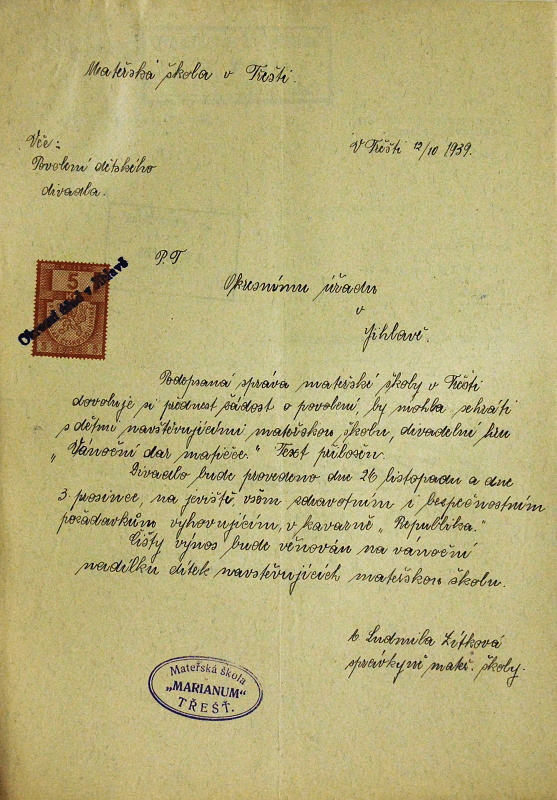 Mateřská škola v Třešti.
Věc:
Povolení dětského
divadla.
V Třešti 12/10 1939.
P. T
5
Okresní úřad v Jihlavě
Okresnímu úřadu
v
Jihlavě.
Podepsaná správa mateřské školy v Třešti
dovoluje si přednest žádost o povolení, by mohla sehráti
s dětmi navštěvujícími mateřskou školu, divadelní hru
„Vánoční dar matičce." Text přiložen.
Divadlo bude provedeno dne 26 listopadu a dne
3. prosince, na jevišti, všem zdravotním i bezpečnostním
požadavkům vyhovujícím, v kavárně „Republika."
Čistý výnos bude věnován na vánoční
nadílku dítek navštěvujících mateřskou školu.
Ludmila Zítková
správkyně mateř. školy.
Mateřská škola
„MARIANUM"
TŘEŠŤ.